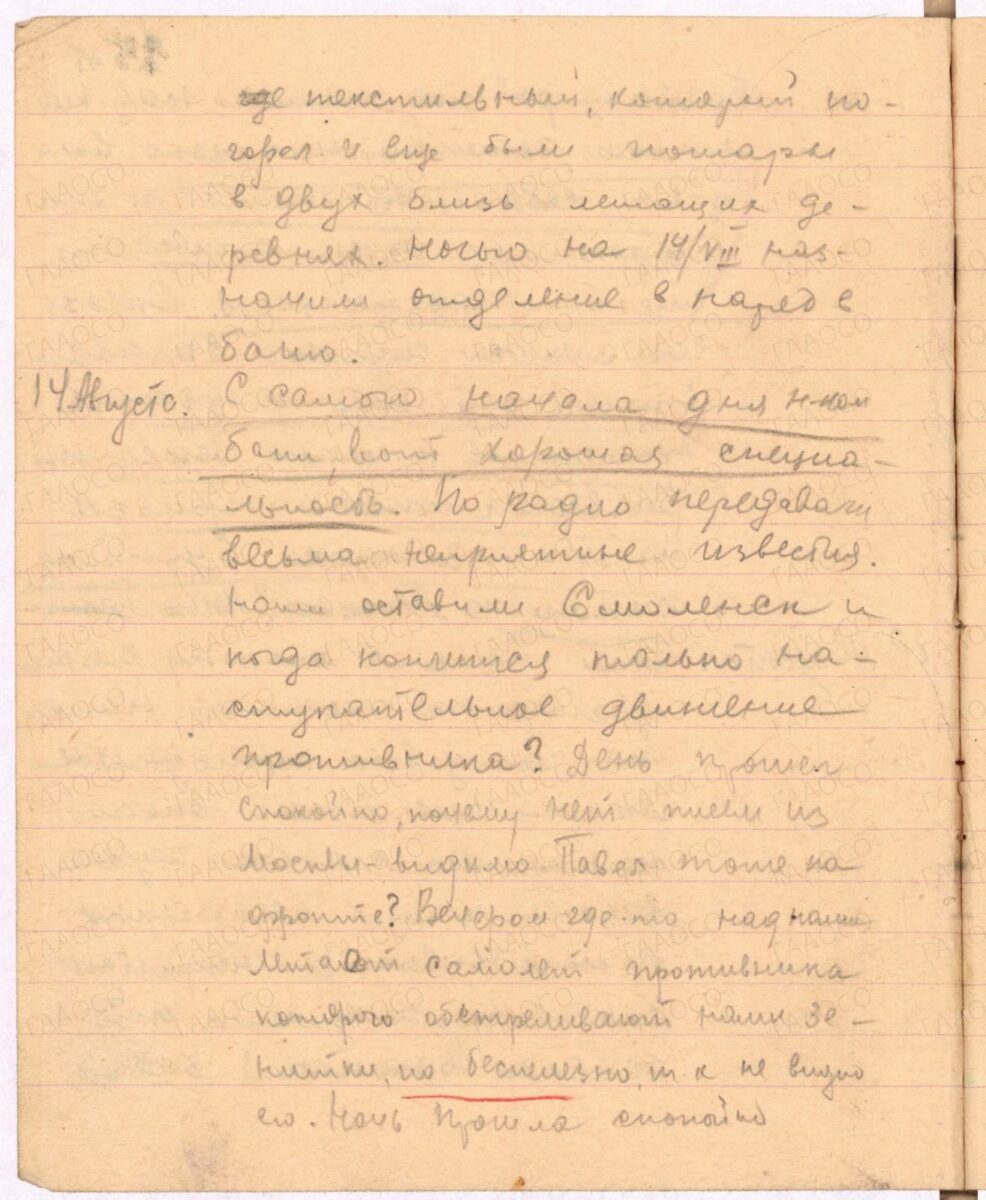 где текстильный, который по-
горел. И еще были пожары
в двух близь лежащих де-
ревнях. Ночью на 14/VIII наз-
начили отделение в наряд в
баню.
14 Августа. С самого начала дня н-ком
бани, вот хорошая специа-
льность. По радио передавали
весьма неприятные известия.
Наши оставили Смоленск и
когда кончится только на-
ступательное движение
противника? День прошел
спокойно, почему нет писем из
Москвы - видимо Павел тоже на
фронте? Вечером где-то над нами
летает самолет противника
которого обстреливают наши зе-
нитки, но бесполезно, т к не видно
его. Ночь прошла спокойно
ГААОСО